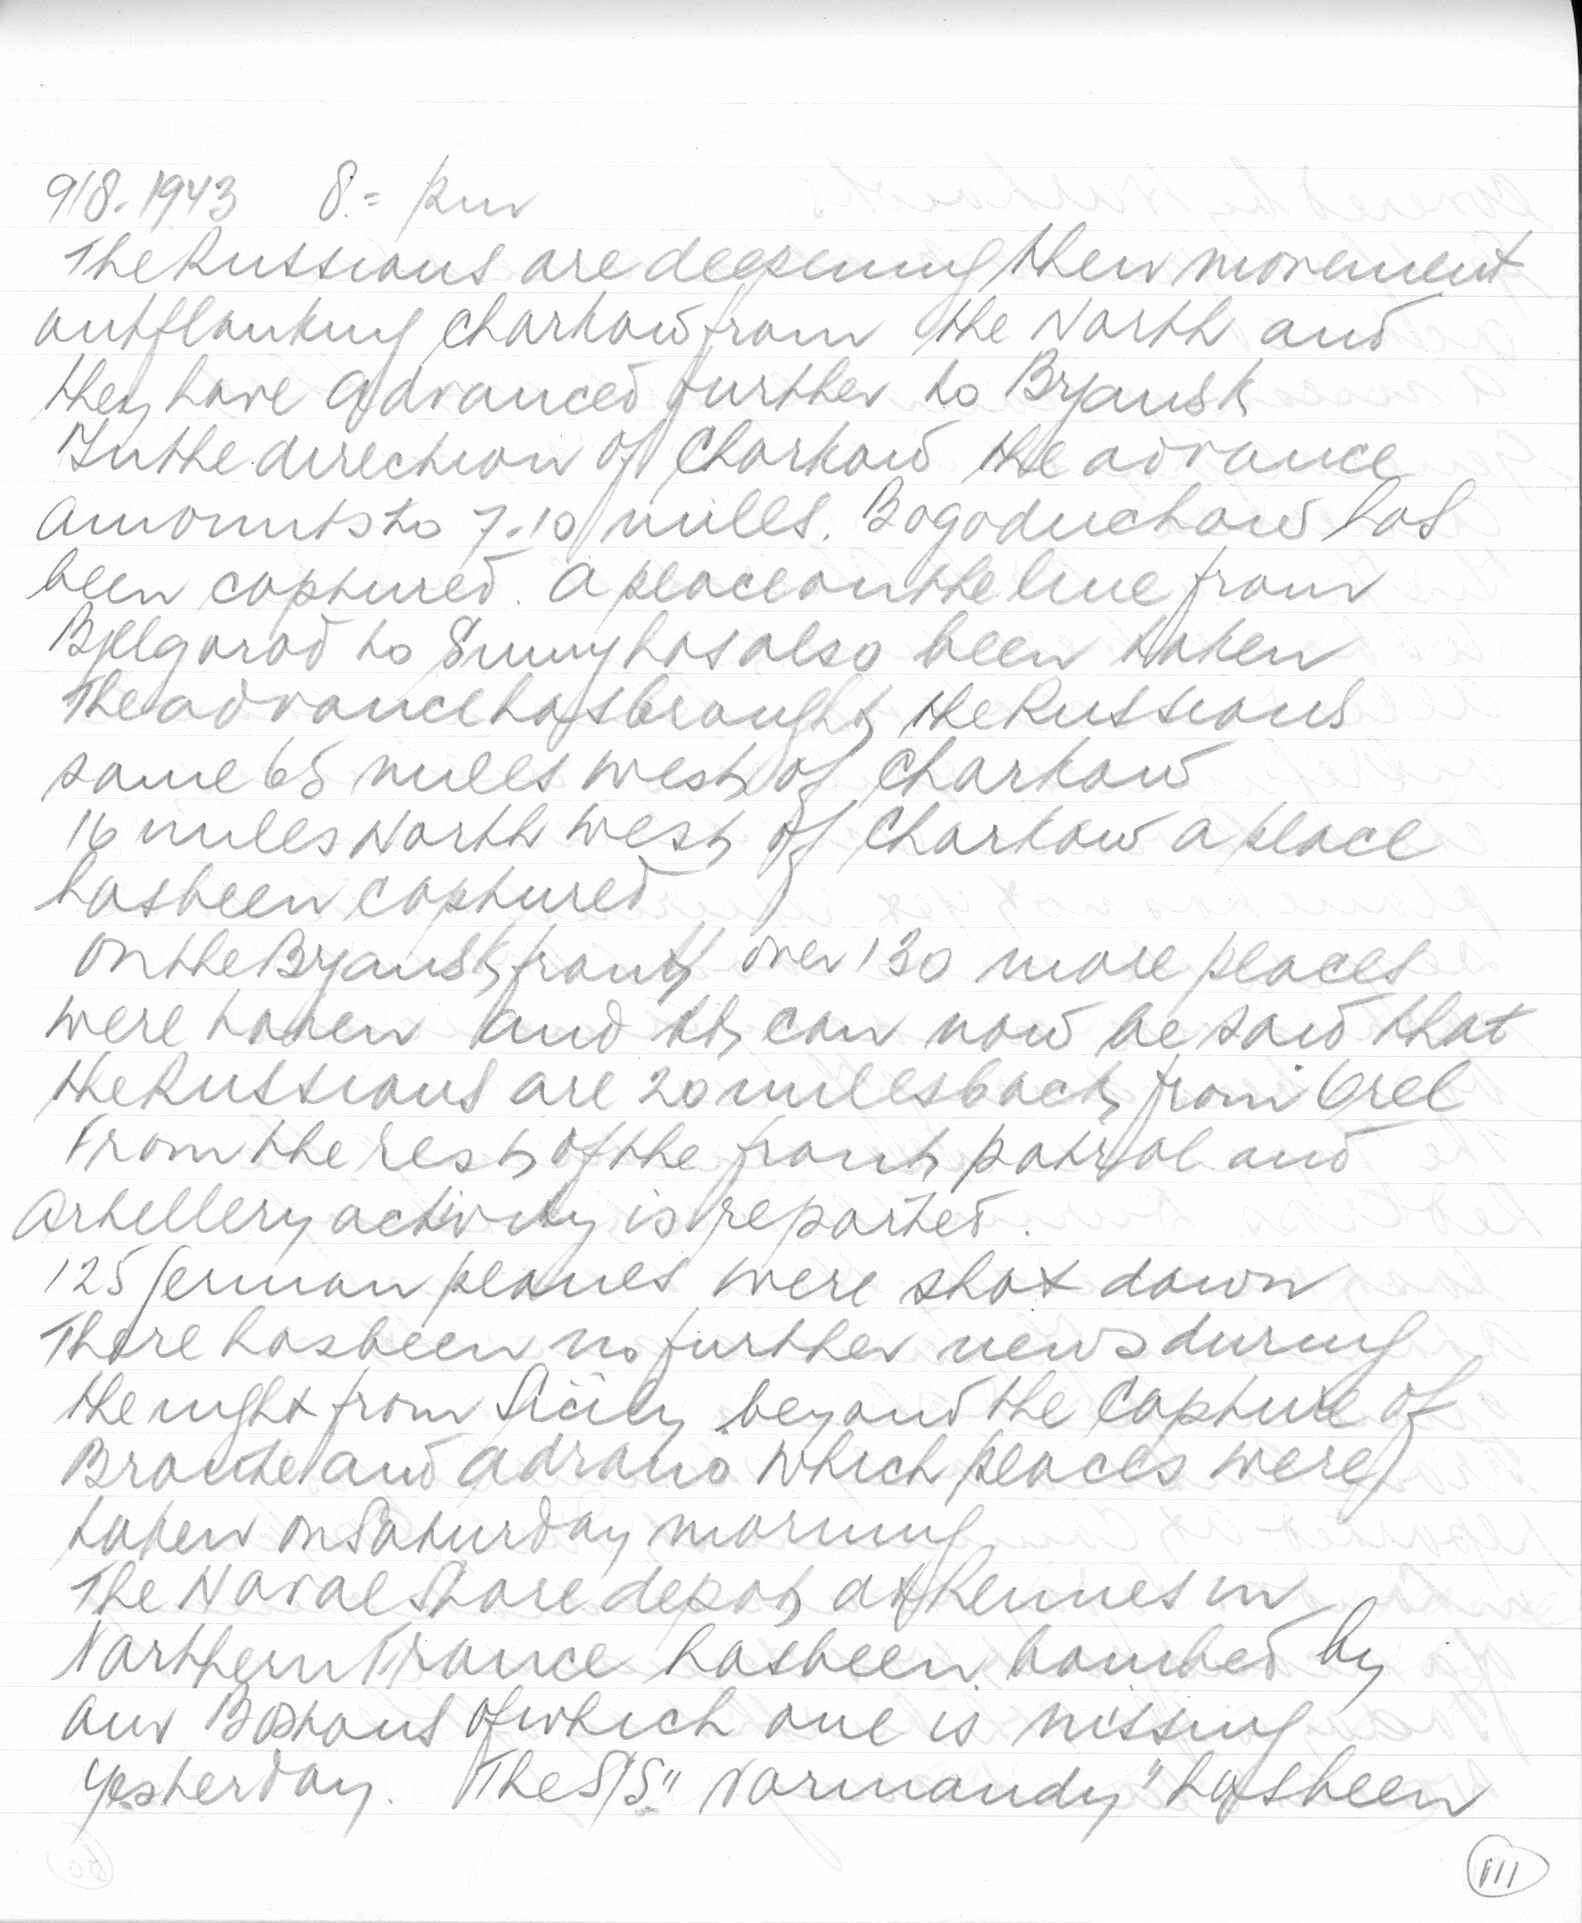 9/8.1943 8.= pm
The Russians are deepening their movement
outflanking Charkow from the North and
they have advanced further to Bryansk
In the direction of Charkow the advance
amounts to 7-10 miles. Bogoduchow has
been captured. A place on the line from
Bjelgorod to Sumy has also been taken
The advance has brought the Russians
some 65 miles west of Charkow
16 miles North west of Charkow a place
has been captured
On the Bryansk front over 130 more places
were taken and it can now be said that
the Russians are 20 miles back from Orel
From the rest of the front patrol and
Artellery activity is reported.
125 German planes were shot down
There has been no further news during
the night from Sicily beyond the capture of
Bronthe and Adrano which places were
taken on Saturday morning
The Naval Store depot at Rennes in
Northern France has been bombed by
our Bostons of which one is missing
yesterday. The S/S "Normandy" has been
111